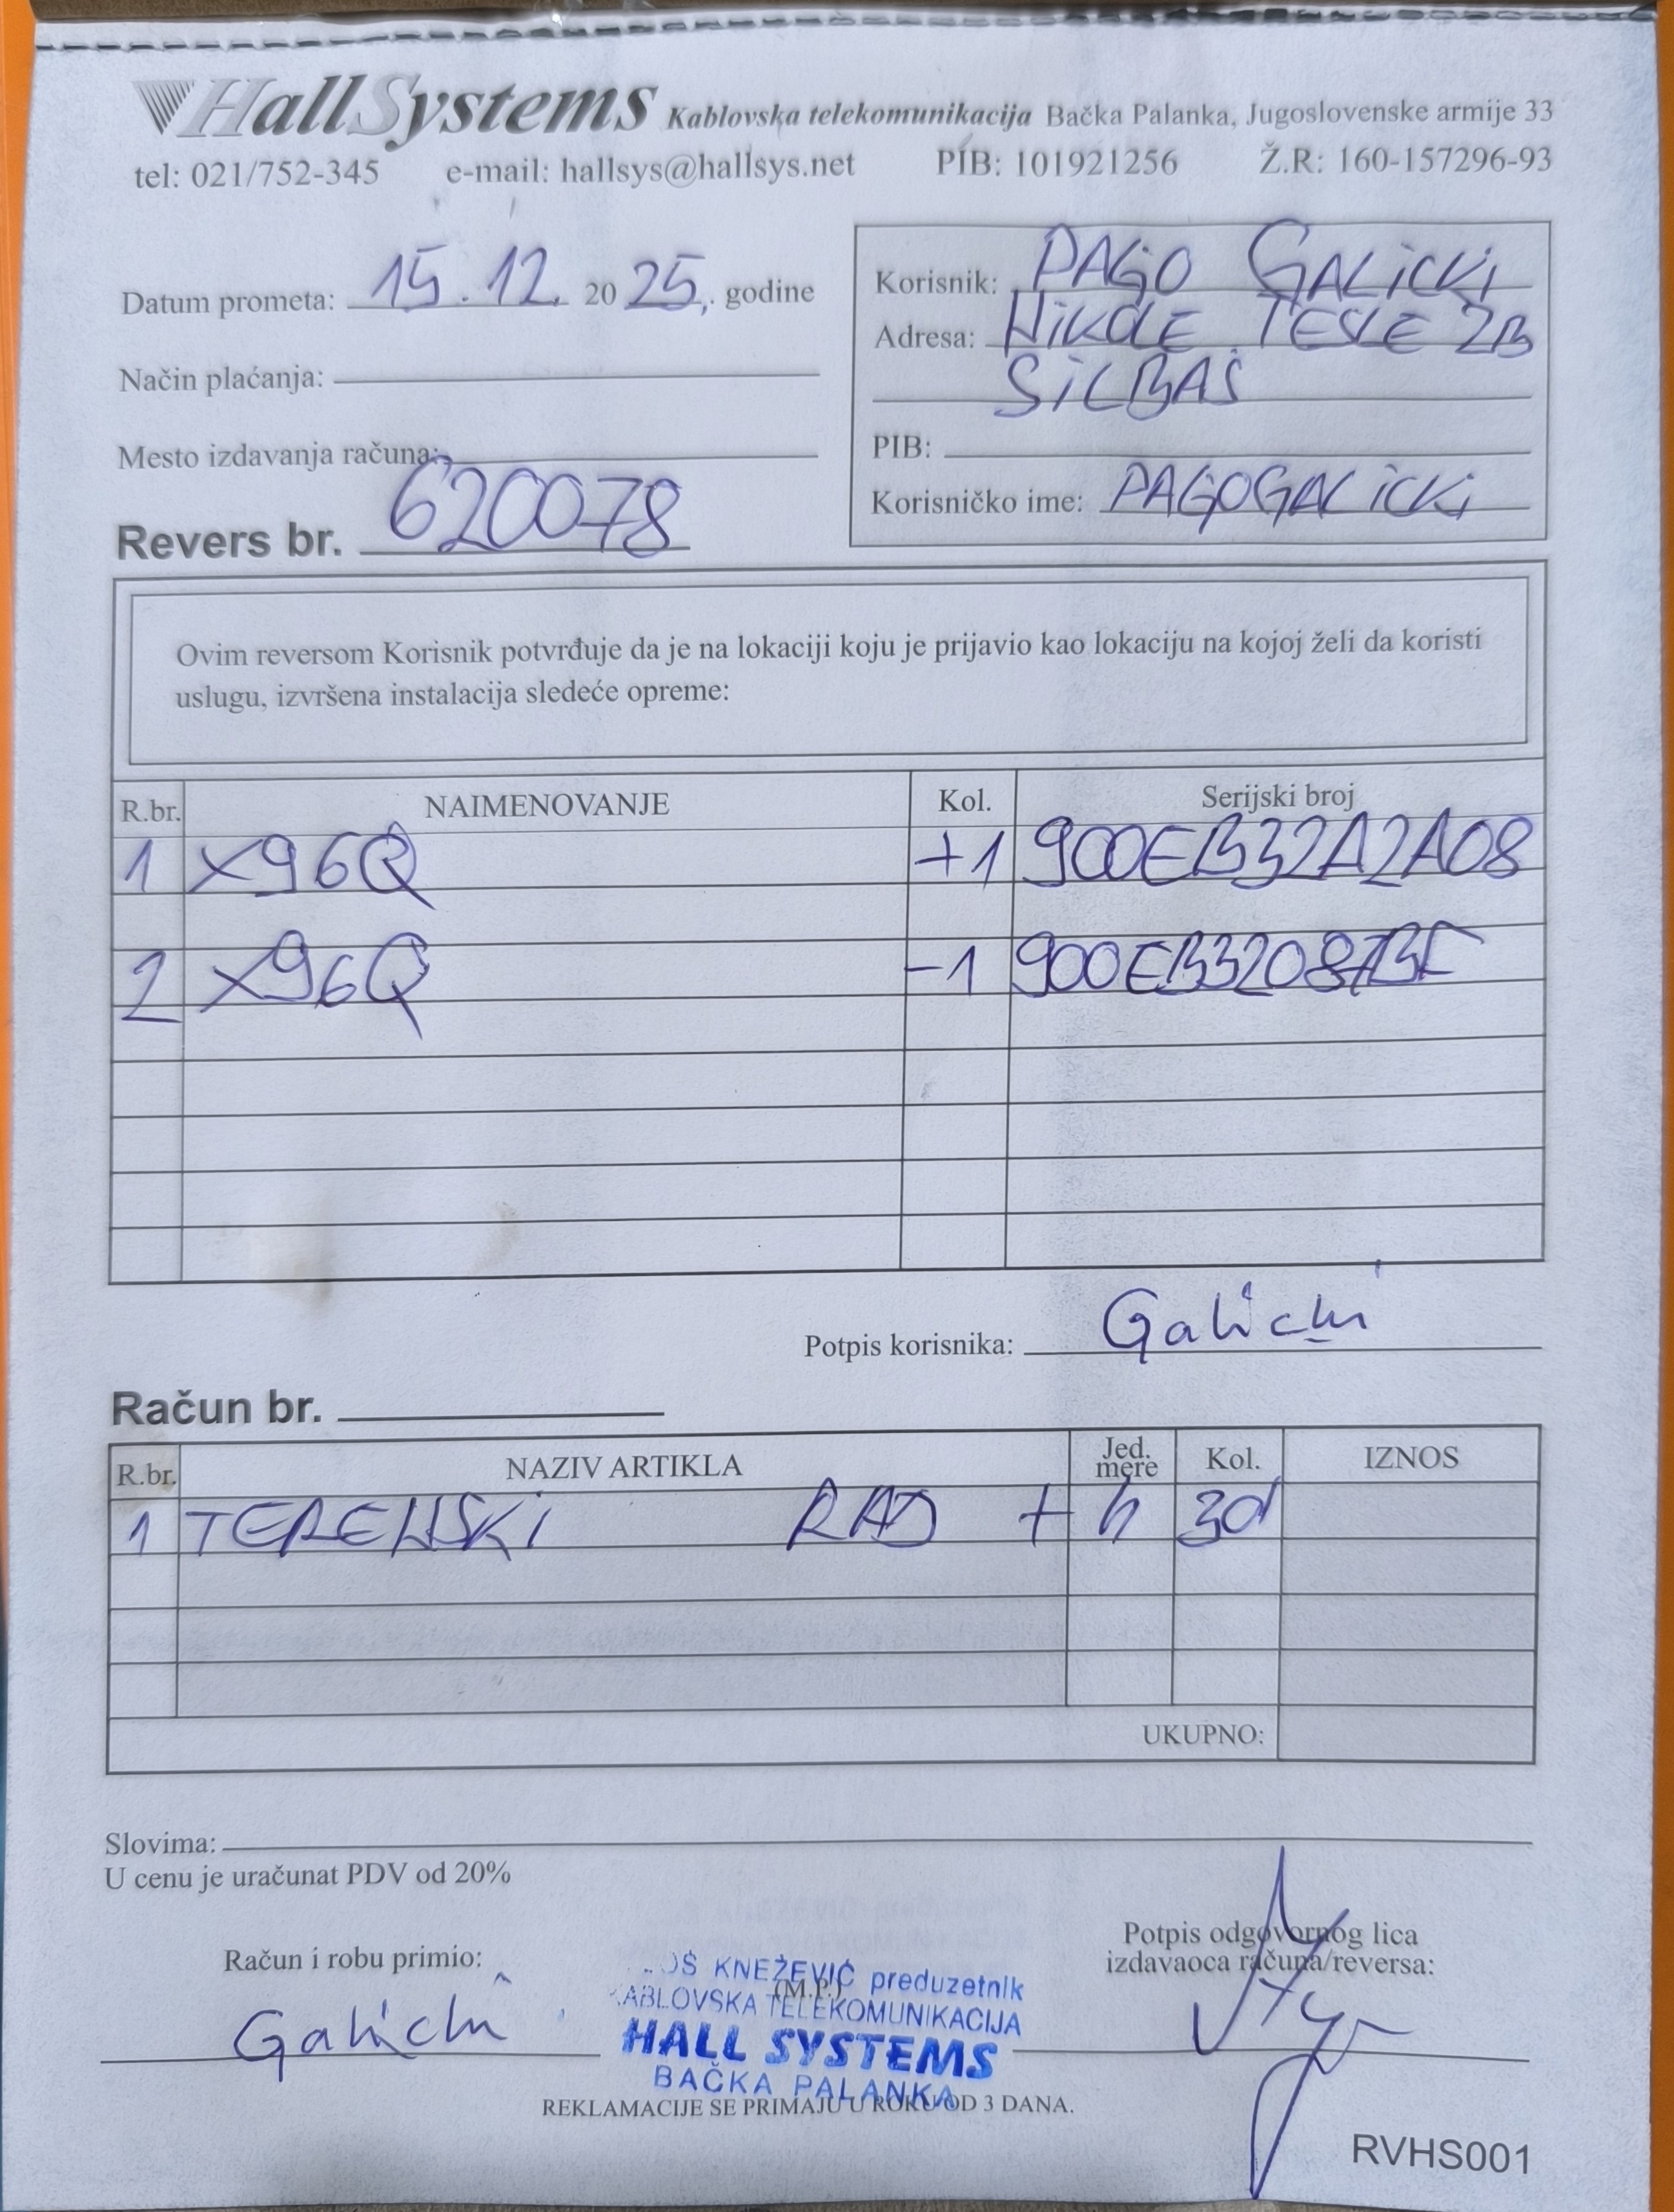 HallSystems Kablovska telekomunikacija Bačka Palanka, Jugoslovenske armije 33
tel: 021/752-345 e-mail: hallsys@hallsys.net PIB: 101921256 Ž.R: 160-157296-93
Datum prometa: 15.12. 2025. godine
Način plaćanja:
Mesto izdavanja računa:
Revers br. 620078
Korisnik: PAGO GALICKI
Adresa: NIKOLE TESLE 2B
SILBAŠ
PIB:
Korisničko ime: PAGOGALICKI
Ovim reversom Korisnik potvrđuje da je na lokaciji koju je prijavio kao lokaciju na kojoj želi da koristi
uslugu, izvršena instalacija sledeće opreme:
R.br. NAIMENOVANJE Kol. Serijski broj
1 X96Q +1 900EB32A2A08
2 X96Q -1
Potpis korisnika: Galicki
Račun br.
R.br. NAZIV ARTIKLA Jed. mere Kol. IZNOS
1 TERENSKI RAD + h
UKUPNO:
Slovima:
U cenu je uračunat PDV od 20%
Račun i robu primio:
Galicki
OŠ KNEŽEVIĆ preduzetnik
(M.P.)
KABLOVSKA TELEKOMUNIKACIJA
HALL SYSTEMS
BAČKA PALANKA
Potpis odgovornog lica
izdavaoca računa/reversa:
REKLAMACIJE SE PRIMAJU U ROKU OD 3 DANA.
RVHS001